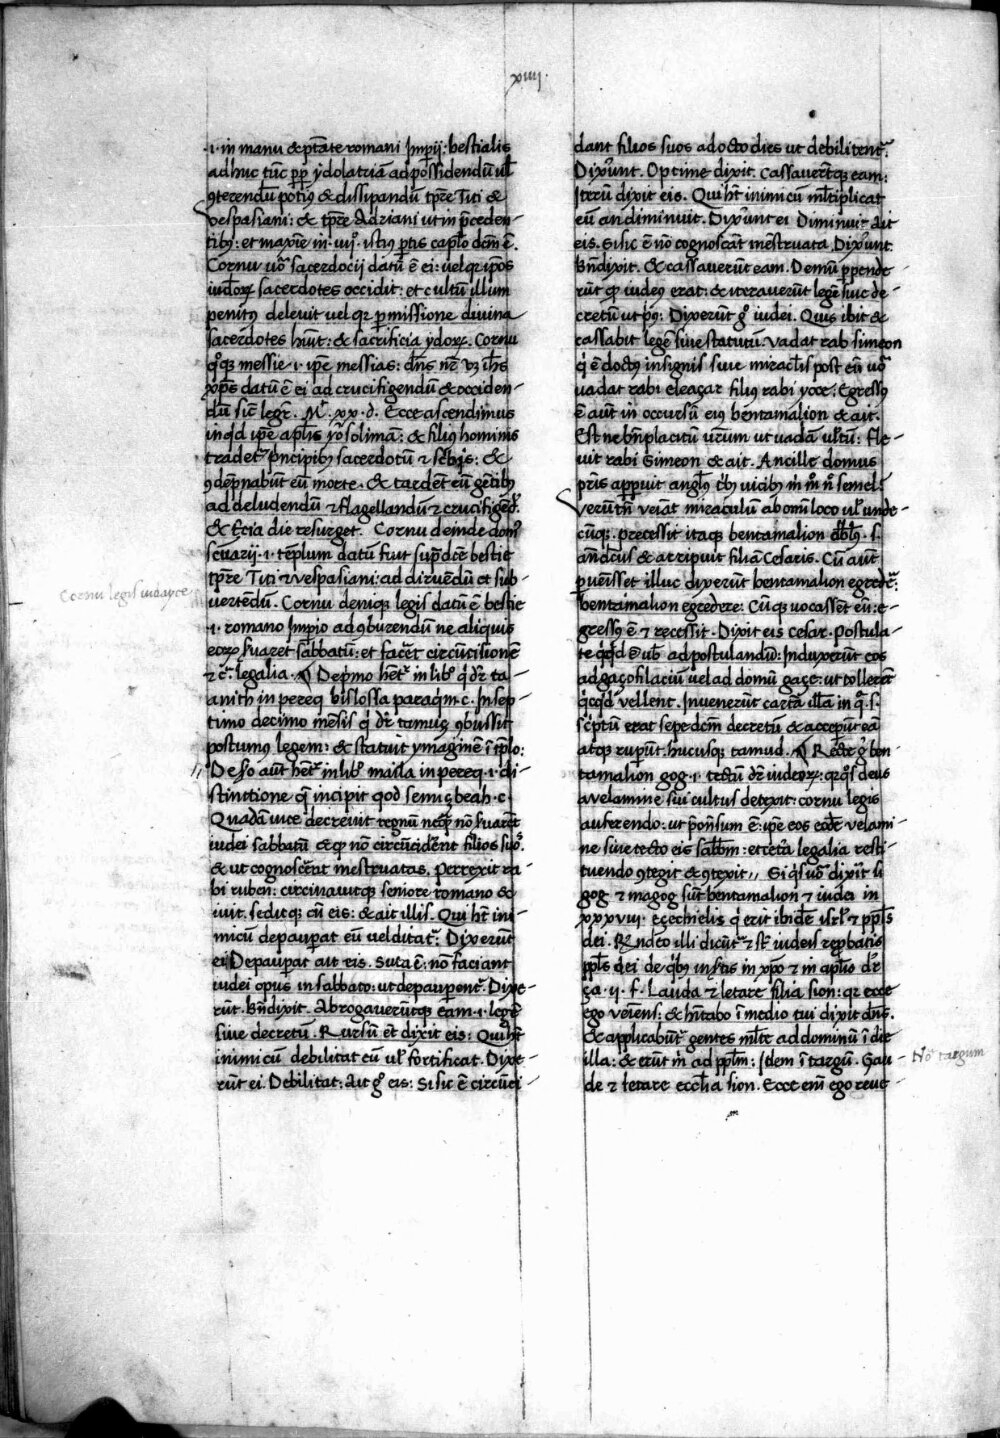 xiiij.
.i. in manu & ptāte romani Impij: bestialis
adhuc tūc ppꝉ ydolatriā ad possidendū uꝉ
ꝯterendū potiꝰ & dissipandū tꝑre Titi &
vespasiani: & tꝑre Adriani ut in p̄ceden-
tibꝰ: et maxīe in .viij. istiꝰ ꝑtis capꝉo dcm̄ ē.
Cornu uº sacerdocij datū ē ei: uel qꝛ ip̄os
iudoꝝ sacerdotes occidit: et cultū illum
penitꝰ delevit uel qꝛ ꝑmissione divina
sacerdotes hūit: & sacrificia ydoꝝ. Cornu
qºqꝫ messie .i. ip̄e messias: dn̄s nr̄ ihs
xp̄s datū ē ei ad crucifigendū & occiden-
dū sic legr̄. Mꝉ. xx. d. Ecce ascendimus
inqd ip̄e aplīs yºsolimā: & filiꝰ hominis
tradetꝛ p̄ncipibꝰ sacerdotū ⁊ scbis: &
ꝯdēpnabūt eū morte. & tradēt eū gētibꝰ
ad deludendū ⁊ flagellandū ⁊ crucifigēd.
& t̄cia die resurget. Cornu deinde domꝰ
scuarij .i. tēplum datū fuit sup̄dc̄e bestie
tꝑre Titi ⁊ vespasiani: ad diruēdū et sub-
vertēdū. Cornu deniqꝫ legis datū ē bestie
.i. romano Impio ad ꝯburendū ne aliquis
eoꝝ s̄uaret sabbatū: et facēt circūcisionē
⁊ cꝰ. legalia. ¶ De pmo hētꝛ in libº q̇ dr̄ ta-
anith in pereq bislossa paraqim .c. In sep-
timo decimo mēsis q̇ dr̄ tamuꝫ ꝯbussit
postumꝰ legem: & statuit ymaginē ī tp̄lo:
De sº aut hētꝛ in libº maila in pereq .i. di-
stinctione q̄ incipit qod semiꝫbeah .c.
Quadā uice decrevit regnū neqꝫ nō s̄uarēt
iudei sabbatū & qꝫ nō circūciderit filios suos.
& ut cognoscēt mestruatas. Perrexit ra
bi ruben: circinavitqꝫ seniore romano &
ivit. seditqꝫ cū eis: & ait illis. Qui h̄t ini-
micū depauꝑat eū vel ditat. Dixerūt
ei Depauꝑat ait eis. Si ita ē: nō faciant
iudei opus in sabbato: ut depauperētꝛ. Dixe-
rūt. Bn̄ dixit. Abrogaverūtqꝫ eam .i. legē
sive decretū. Rursū et dixit eis: Qui h̄t
inimicū debilitat eū uꝉ fortificat. Dixe-
rūt ei. Debilitat: Ait gº eis: Si sic ē circūci-
dant filios suos ad octo dies ut debilitentꝛ.
Dixūnt. Optime dixit. Cassaverūtqꝫ eam:
Iterū dixit eis. Qui h̄t inimicū mꝉtiplicat
eū an diminuit. Dixūnt ei Diminuit Ait
eis. Si sic ē nō cognoscāt mēstruata. Dixūnt.
Bn̄ dixit. & cassaverūt eam. Demū ꝑpende-
rūt qꝫ iudeus erat: & iteraverūt legē sive de-
cretū ut pꝰ: Dixerūt gº iudei. Quis ibit &
cassabit legē sive statutū. Vadat rab simeon
q̇ ē doctꝰ insignis sive miraclis post eū uº
vadat rabi eleaçar filiꝰ rabi yoce: Egressꝰ
ē aūt in occursū eiꝰ bentamalion & ait.
Est ne bn̄placitū vr̄um ut vadā vltū: fle-
vit rabi Simeon & ait. Ancille domus
pr̄is apꝑuit anglꝰ tbꝰ vicibꝰ m̄ m̄ nō semel:
Verūtn̄ veiāt miraculū ab omī loco uꝉ unde-
cūqꝫ. precessit itaqꝫ bentamalion dblꝰ .s.
an̄dcūs & arripuit filiā Cesaris. Cū aut
pvēisset illuc dixerūt bentamalion egredeꝛ:
bentamalion egredere: Cūqꝫ vocassēt eū: e-
gressꝰ ē ⁊ recessit. Dixit eis cesar. Postula-
te qd ad postulandū: Induxerūt eos
ad gaçofilaciū vel ad domū gaçe: ut tollerāt
qcqd vellent. Invenerūt cartā illā in q̄ .s.
sc̄ptū erat sepe dcm̄ decretū & acceperūt eā
atqꝫ ruperūt. hucusqꝫ tamud. ¶ Recte gº ben-
tamalion gog .i. tectū dr̄ iudeoꝝ: qꝛ qºs deus
a velamine sui cultus detexit: cornu legis
auferendo: ut p̄onsum ē: ip̄e eos eodē velami-
ne sive tecto eis sabbm: et cetā legalia resti-
tuendo ꝯtegit & ꝯtexit,, Si qs uº dixit si
gog ⁊ magog sūt bentamalion ⁊ iudei in
xxxviij. eçechielis q̇ erit ibidē isrl ⁊ ppls
dei. Rn̄deo illi dicūtꝛ ⁊ st iudeis reprobatis
ppls dei de qbꝰ in xpo ⁊ in aplio dr̄
ça .ij. f. Lauda ⁊ letare filia sion: qꝛ ecce
ego veiens: & hitabo ī medio tui dixit dn̄s.
& applicabūtꝛ gentes mlte ad dominū ī die
illa: & erūt m̄ ad pplm: Idem ī targū. Gau-
de ⁊ letare ecclia sion. Ecce em̄ ego reve-
Cornu legis iudayce
Nō targum